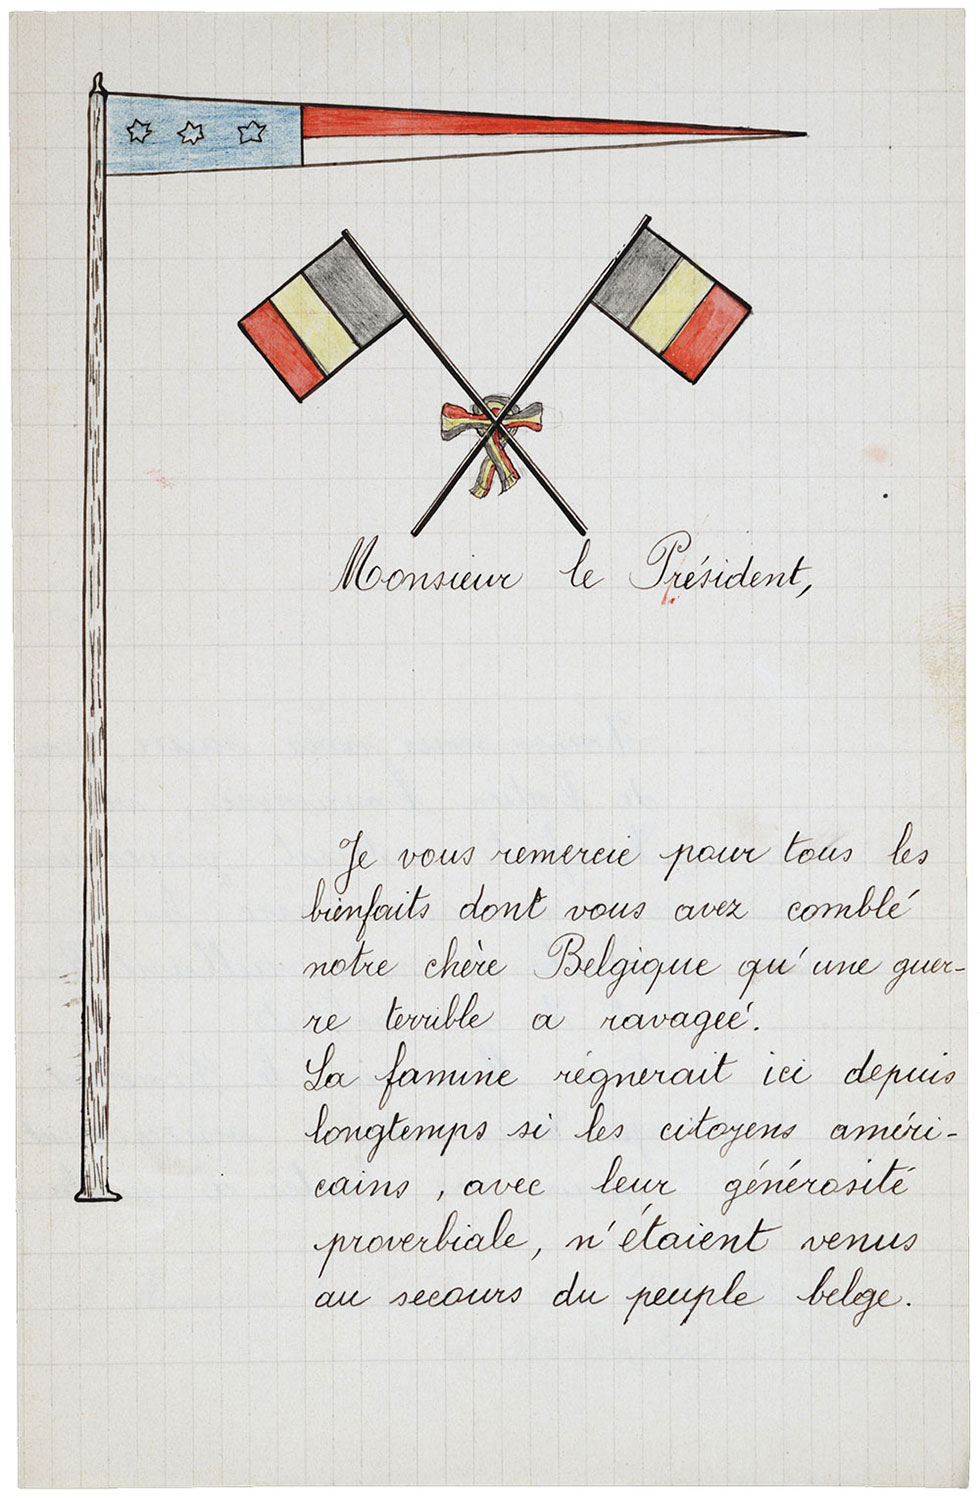 Monsieur le Président,
Je vous remercie pour tous les
bienfaits dont vous avez comblé
notre chère Belgique qu'une guer-
re terrible a ravagée.
La famine régnerait ici depuis
longtemps si les citoyens améri-
cains, avec leur générosité
proverbiale, n'étaient venus
au secours du peuple belge.